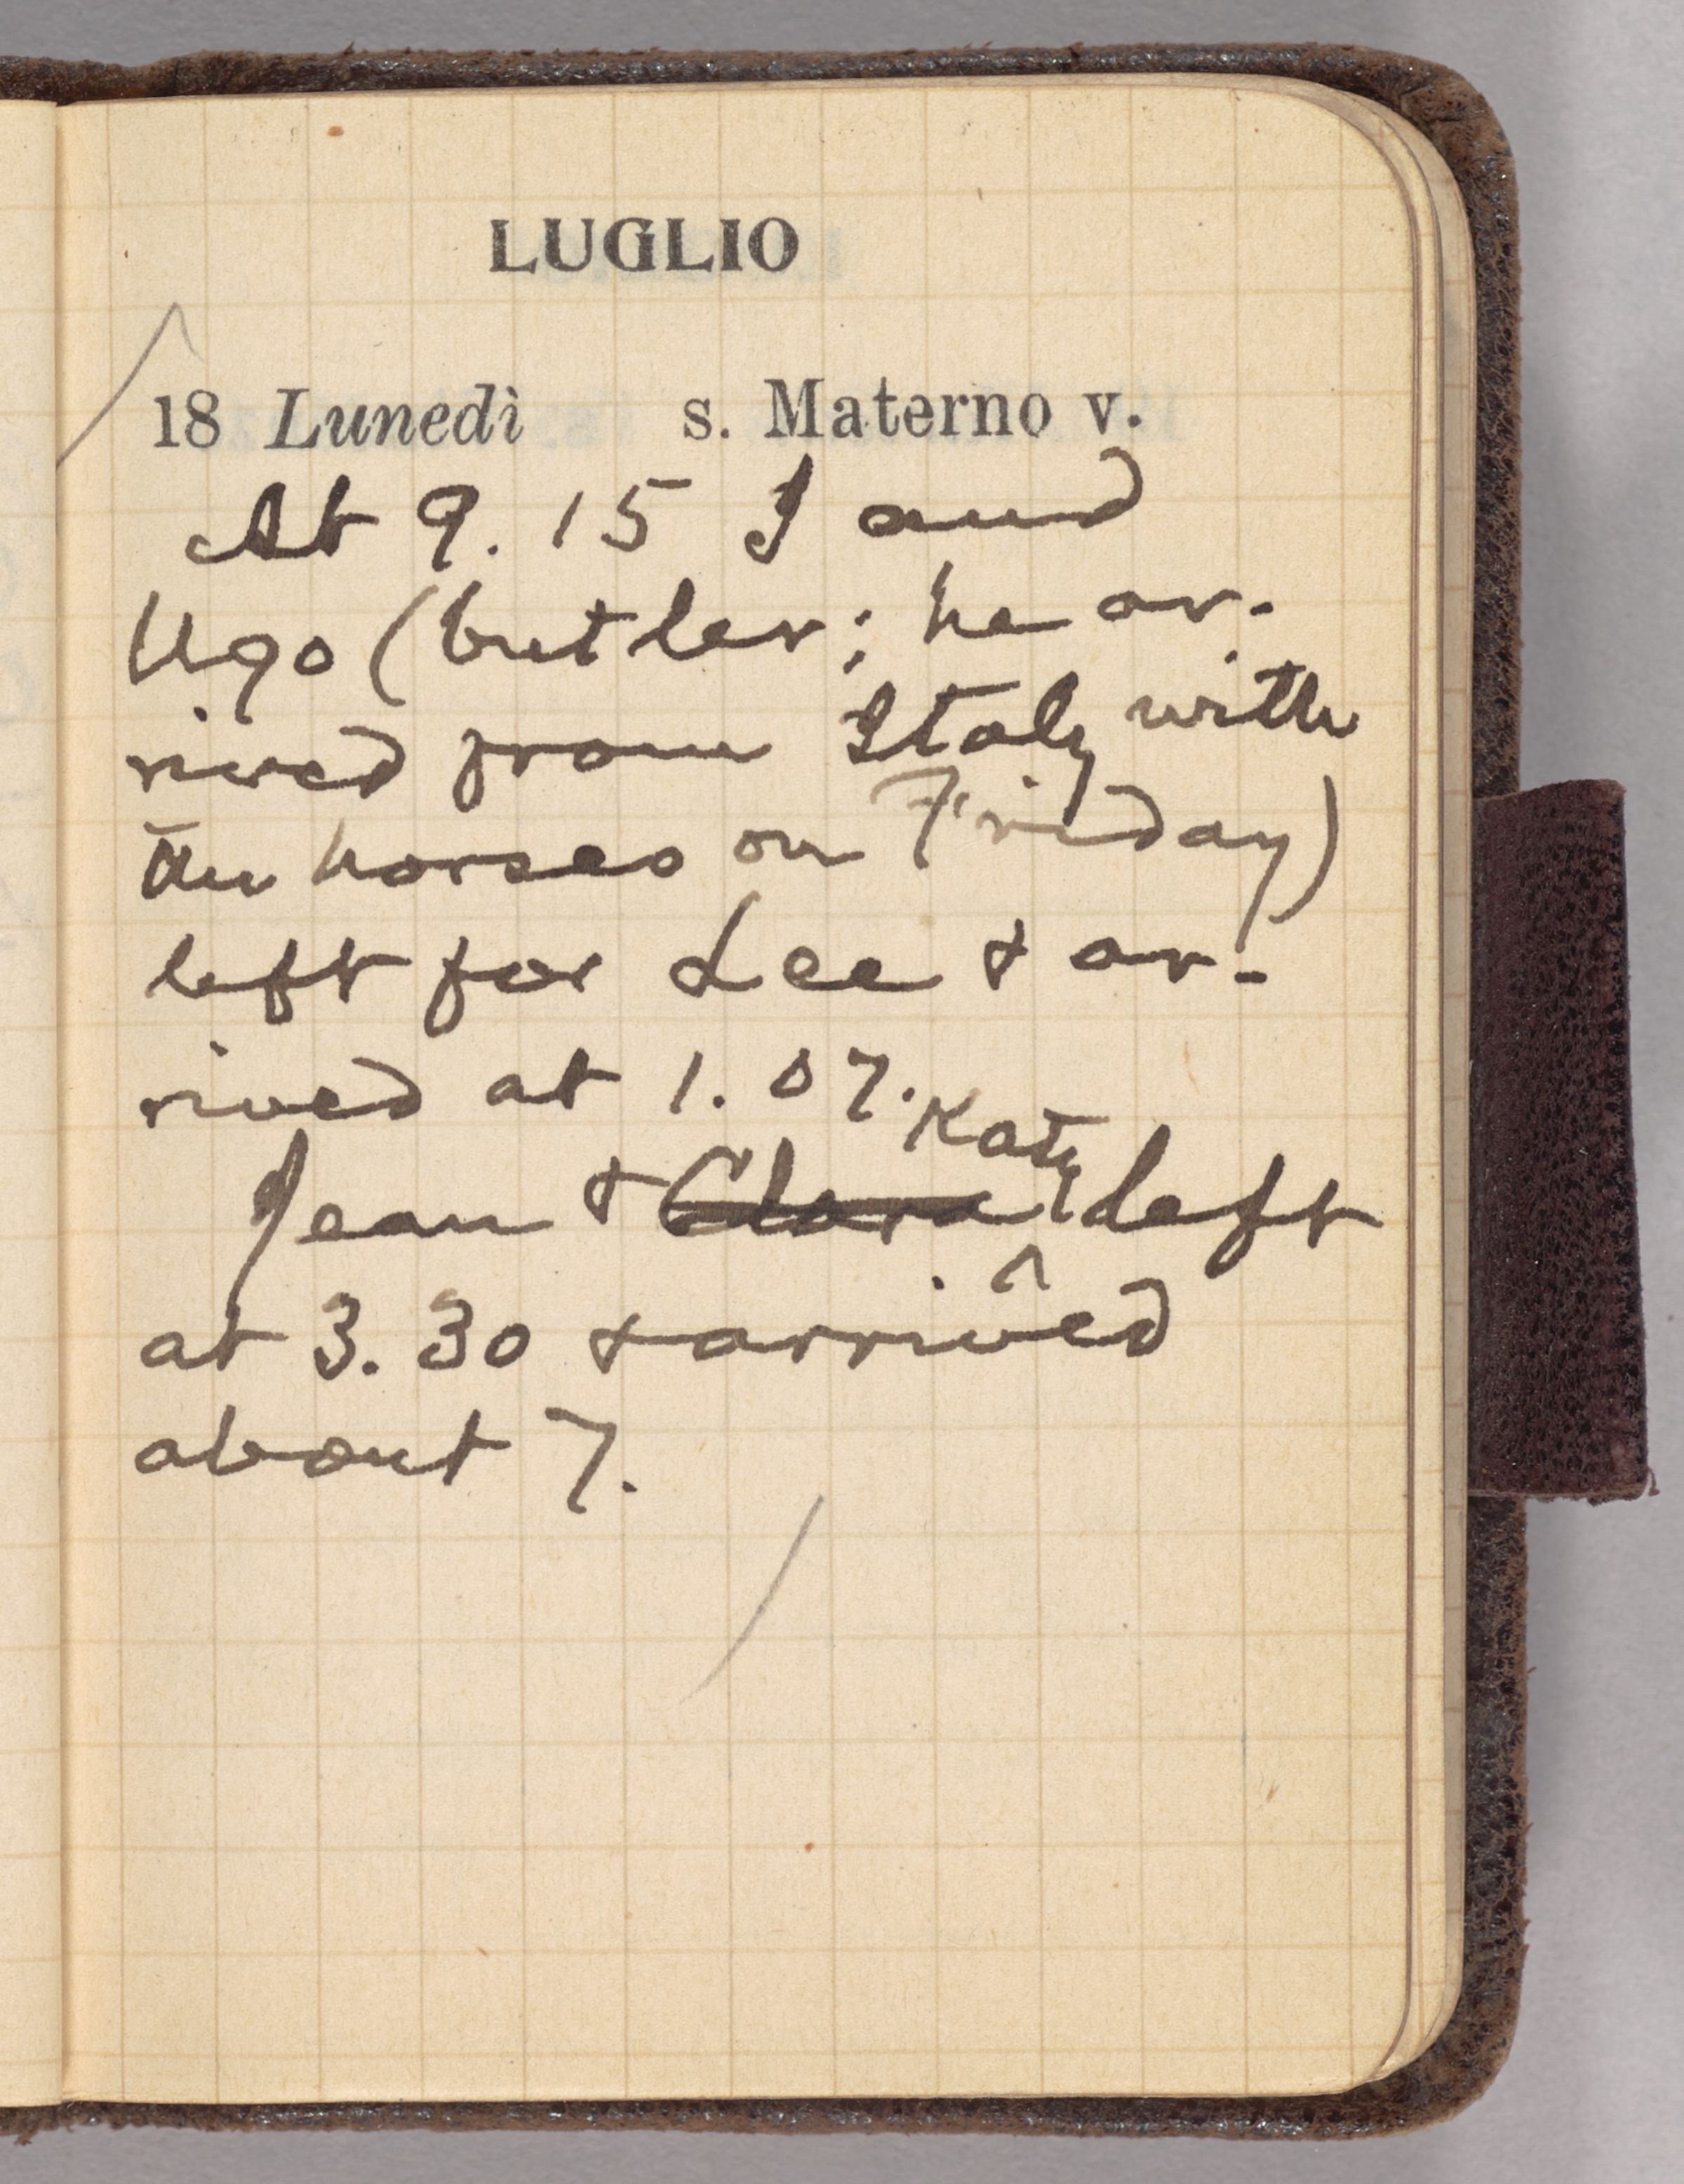 LUGLIO
18 Lunedì s. Materno v.
At 9.15 I and
Ugo (butler; he ar-
rived from Italy with
the horses on Friday)
left for Lee & ar-
rived at 1.07.
Jean & Clara Katy left
at 3.30 & arrived
about 7.